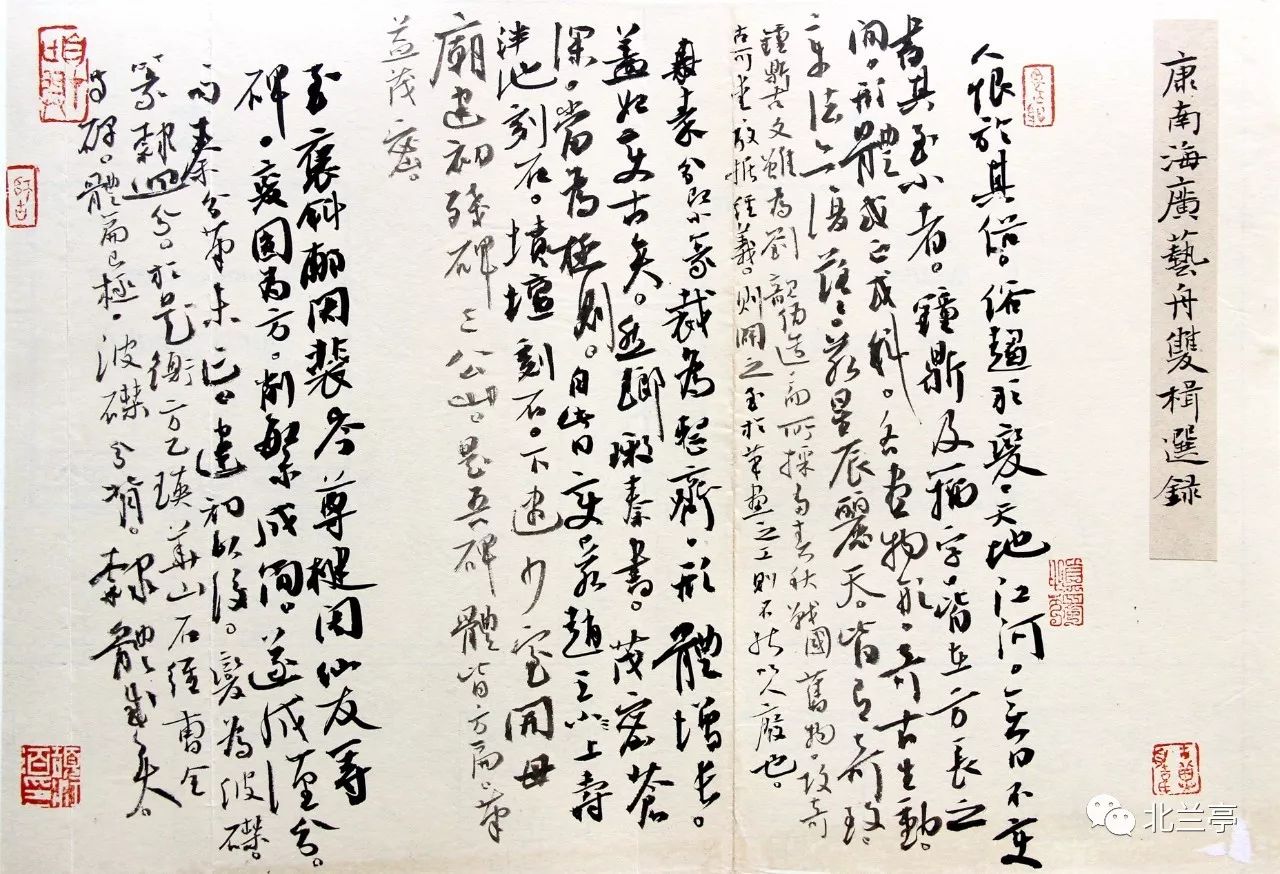 康南海廣藝舟雙楫選錄
人恨於其俗。俗趨於變。天地江河。無日不變
書其至小者。鐘鼎及籀字皆在方長之
間。形體或正或斜。各盡物形。奇古生動。
章法亦復落落。若星辰麗天。皆有奇致。
鐘鼎古文雖為劉歆偽造而所採多春秋戰國舊物。故奇
古可愛。考據經義。則闢之至於筆畫之工則不能以人廢也。
秦分即小篆裁為整齊。形體增長。
蓋始變古矣。然瑯琊秦書。茂密蒼
深。當為極則。自此日變。若趙王上壽
泮池刻石。墳壇刻石。下逮少室開母
廟建初殘碑三公山。是吾碑體皆方扁。筆
益茂密。
至褒斜郙閣裴岑尊楗閣仙友等
碑。變圓為方。削繁成簡。遂成漢分。
而秦分筆未亡。建初以後。變為波磔。
篆隸迥分。於是衡方乙瑛華山石經曹全
等碑。體扁已極。波磔分背。隸體成矣。
師古
北兰亭